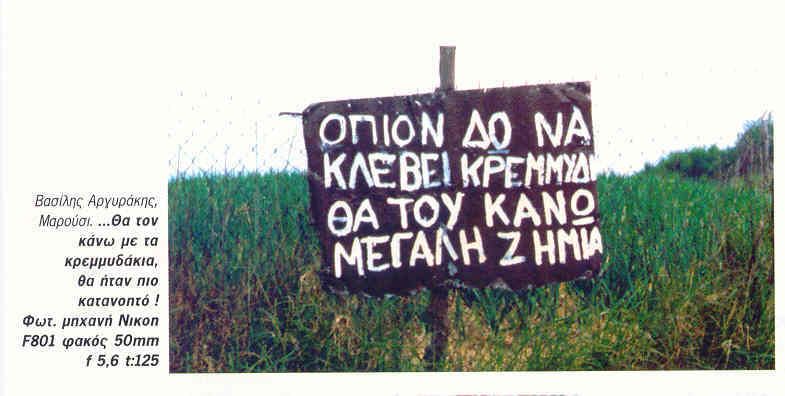 Βασίλης Αργυράκης,
Μαρούσι. ...Θα τον
κάνω με τα
κρεμμυδάκια,
θα ήταν πιο
κατανοητό !
Φωτ. μηχανή Nικοn
F801 φακός 50mm
f 5,6 t:125
ΟΠΙΟΝ ΔΟ ΝΑ
ΚΛΕΒΕΙ ΚΡΕΜΜΥΔΙ
ΘΑ ΤΟΥ ΚΑΝΩ
ΜΕΓΑΛΗ ΖΗΜΙΑ